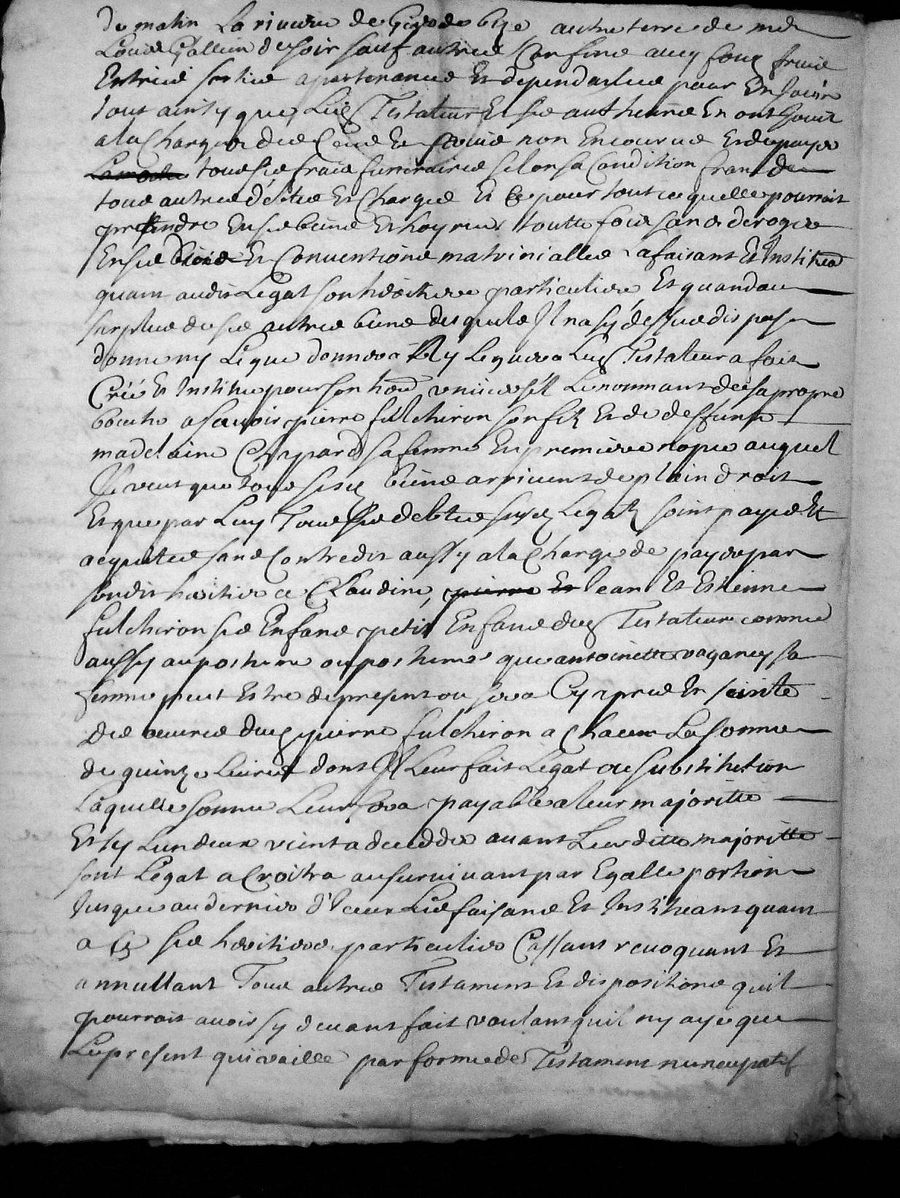 du matin La riviere de Gier de bize autre terre de me
Louis Gallein de soir sauf autres Confins avec fons fruis
Entrées sorties apartenances Et dependances pour En Jouir
tout ainsy que Led Testateur Et ses autheurs En ont Jouit
a la Charge des Cens Et servis non Encourus Et de payer
tous ses frais funeraires selon sa Condition Et
tous autres debtes Et Charges Et Ce pour tout ce quelle pourroit
prendre En ses biens Et hoyries toutte fois sans deroger
En ses Et Conventions matrimialles La faisant Et Instituant
quant audit Legat son heritiere particuliere Et quand au
surplus de ses autres biens desquels Il na sy dessus disposé
donné ny Legué donnera ny Leguera Led Testateur a fait
Créé Et Institué pour son her universel Le nommant de sa propre
bouche a scavoir pierre fulchiron son filz Et de deffunte
madelaine sa femme En premiere nopce auquel
Il veut que tous sesd biens arrivent de plain droit
Et que par Luy Tous ses debtes susd Legatz soint payés Et
acquittés sans Contredit aussy a la Charge de payer par
sondit heritier a Claudine, pierre Et Jean Et Estienne
fulchiron ses Enfans petit Enfans dud Testateur comme
aussy au postume ou postumes que antoinette vaganey sa
femme peut Estre de present ou sera Cy apres En seinte
des œuvres dud pierre fulchiron a Chacun La somme
de quinze Livres dont Il Leur fait Legat de substitution
Laquelle somme Leur sera payable a leur majoritte
Et sy Lun deux vient a decedder avant Leurditte majoritte
sont Legat a Croitra au survivant par Egalle portion
Jusque au dernier d'Iceux Les faisans Et Instituant quant
a ce ses heritiers particulier Cassant revoquant Et
annullant Tous autres Testament Et dispositions quil
pourroit avoir sy devant fait voulant quil ny aye que
Le present qui vaille par forme de Testament nuncupatif